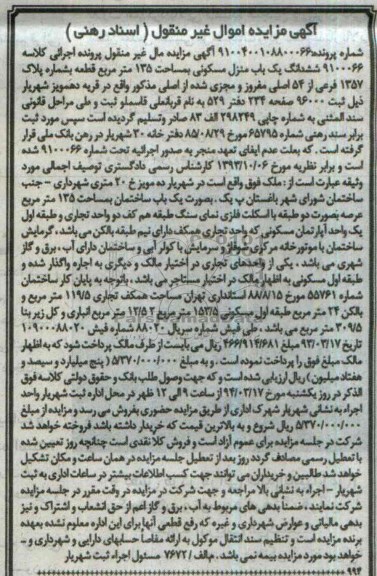 آگهی مزایده اموال غیر منقول ( اسناد رهنی )
شماره پرونده: ۹۱۰۰۴۰۰۱۰۸۸۰۰۰۶۶ آگهی مزایده مال غیر منقول پرونده اجرائی کلاسه
۹۱۰۰۰۶۶ ششدانگ یک باب منزل مسکونی بمساحت ۱۳۵ متر مربع قطعه بشماره پلاک
۱۳۵۷ فرعی از ۵۴ اصلی مفروز و مجزی شده از اصلی مذکور واقع در قریه دهمویز شهریار
ذیل ثبت ۹۶۰۰۰ صفحه ۲۳۴ دفتر ۵۲۹ به نام قربانعلی قاسملو ثبت و طی مراحل قانونی
سند المثنی به شماره چاپی ۲۹۸۲۴۹ الف ۸۳ صادر وتسلیم گردیده است سپس مورد ثبت
برابر سند رهنی شماره ۶۵۷۹۵ مورخ ۸۵/۰۸/۲۹ دفتر خانه ۳۰ شهریار در رهن بانک ملی قرار
گرفته است . که بعلت عدم ایفای تعهد منجر به صدور اجرائیه تحت شماره ۹۱۰۰۰۶۶ شده
است و برابر نظریه مورخ ۱۳۹۳/۱۰/۰۶ کارشناس رسمی دادگستری توصیف اجمالی مورد
وثیقه عبارت است از : ملک فوق واقع است در شهریار ده مویز خ ۲۰ متری شهرداری - جنب
ساختمان شورای شهر باغستان پ یک . بصورت یک باب ساختمان بمساحت ۱۳۵ متر مربع
عرصه بصورت دو طبقه با اسکلت فلزی نمای سنگ طبقه هم کف دو واحد تجاری و طبقه اول
یک واحد آپارتمان مسکونی که واحد تجاری همکف دارای نیم طبقه بالکن می باشد . گرمایش
ساختمان با موتورخانه مرکزی شوفاژ و سرمایش با کولر آبی و ساختمان دارای آب ، برق و گاز
شهری می باشد . یکی از واحدهای تجاری در اختیار مالک و دیگری به اجاره واگذار شده و
طبقه اول مسکونی به اظهار مالک در اختیار مستاجر می باشد . باتوجه به پایان کار ساختمان
شماره ۵۵۷۶۱ مورخ ۸۸/۸/۱۵ استانداری تهران مساحت همکف تجاری ۱۱۹/۵ متر مربع و
بالکن ۲۴ متر مربع طبقه اول مسکونی ۱۵۳/۵ متر مربع ۱۲/۵۲ متر مربع انباری و کل زیر بنا
۳۰۹/۵ متر مربع می باشد . طی فیش شماره سریال ۸۸۰۲۰ شماره فیش ۱۰۹۰۰۰۸۸۰۲۰
تاریخ ۹۳/۰۲/۱۷ مبلغ ۴۶۶/۹۱۴/۶۸۱ ریال می بایست از طرف مالک پرداخت شود که به اظهار
مالک مبلغ فوق را پرداخت نموده است . و به مبلغ ۵/۳۷۰/۰۰۰/۰۰۰ ( پنج میلیارد و سیصد و
هفتاد میلیون ) ریال ارزیابی شده است و که جهت وصول طلب بانک و حقوق دولتی کلاسه فوق
الذکر در روز یکشنبه مورخ ۹۴/۰۳/۱۷ از ساعت ۹ الی ۱۲ ظهر در محل اداره ثبت شهریار واحد
اجراء به نشانی شهریار شهرک اداری از طریق مزایده حضوری بفروش می رسد و مزایده از مبلغ
۵/۳۷۰/۰۰۰/۰۰۰ ریال شروع و به بالاترین قیمت که خریدار داشته باشد فروخته خواهد شد
شرکت در جلسه مزایده برای عموم آزاد است و فروش کلا نقدی است چنانچه روز تعیین شده
با تعطیل رسمی مصادف گردد روز بعد از تعطیل جلسه مزایده در همان ساعت و مکان تشکیل
خواهد شد طالبین و خریداران می توانند جهت کسب اطلاعات بیشتر در ساعات اداری به ثبت
شهریار - اجراء به نشانی بالا مراجعه و جهت شرکت در مزایده در وقت مقرر در جلسه مزایده
شرکت نمایند ، ضمناً بدهی های مربوط به آب ، برق و گاز اعم از حق انشعاب و اشتراک و نیز
بدهی مالیاتی و عوارض شهرداری و غیره که رفع قطعی آنها برای این اداره معلوم نشده بعهده
برنده مزایده است و تنظیم سند انتقال موکول به ارائه مفاصا حسابهای دارایی و شهرداری و ...
خواهد بود مورد مزایده بیمه نمی باشد . م الف / ۷۶۷۲ مسئول اجراء ثبت شهریار
۹۹۴